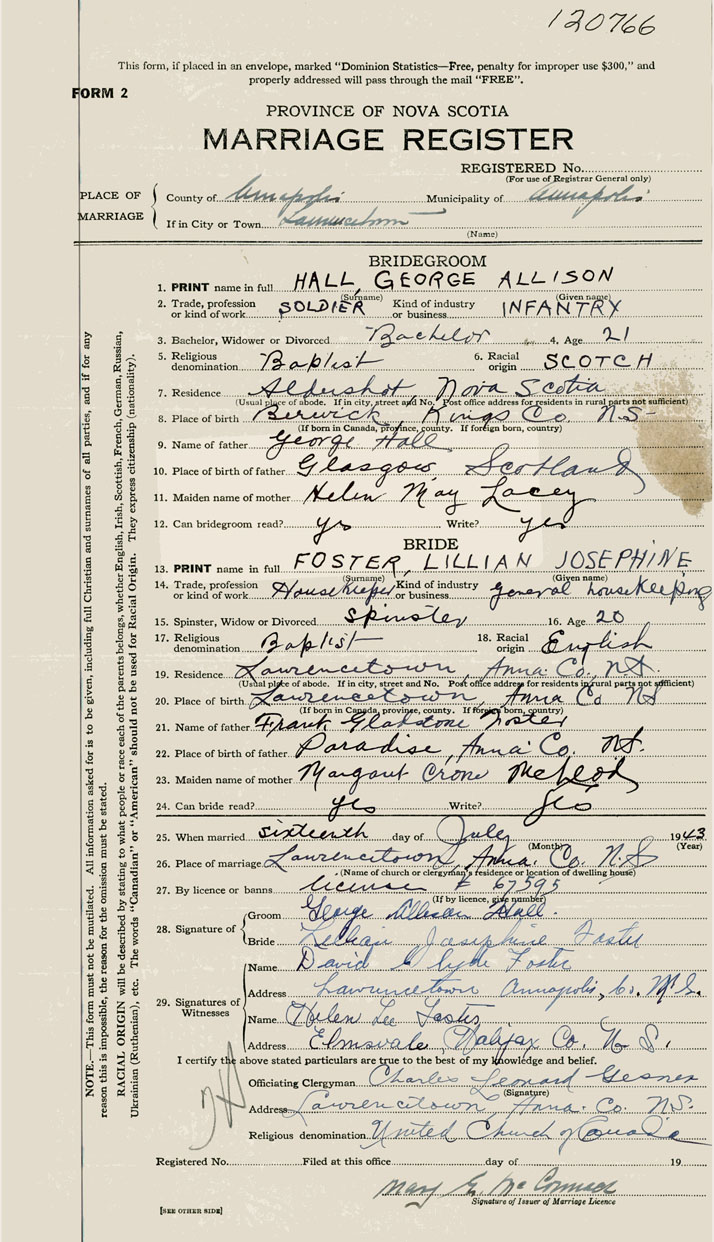 120766
This form, if placed in an envelope, marked "Dominion Statistics—Free, penalty for improper use $300," and
properly addressed will pass through the mail "FREE".
FORM 2
PROVINCE OF NOVA SCOTIA
MARRIAGE REGISTER
REGISTERED No.
(For use of Registrar General only)
PLACE OF MARRIAGE
County of Annapolis Municipality of Annapolis
If in City or Town Lawrencetown
(Name)
BRIDEGROOM
1. PRINT name in full HALL, GEORGE ALLISON
(Surname) (Given name)
2. Trade, profession or kind of work SOLDIER Kind of industry or business INFANTRY
3. Bachelor, Widower or Divorced Bachelor 4. Age 21
5. Religious denomination Baptist 6. Racial origin SCOTCH
7. Residence Aldershot, Nova Scotia
(Usual place of abode. If in city, street and No. Post office address for residents in rural parts not sufficient)
8. Place of birth Berwick Kings Co N.S.
(If born in Canada, province, county. If foreign born, country)
9. Name of father George Hall
10. Place of birth of father Glasgow, Scotland
11. Maiden name of mother Helen May Lacey
12. Can bridegroom read? yes Write? yes
BRIDE
13. PRINT name in full FOSTER, LILLIAN JOSEPHINE
(Surname) (Given name)
14. Trade, profession or kind of work Housekeeper Kind of industry or business General housekeeping
15. Spinster, Widow or Divorced Spinster 16. Age 20
17. Religious denomination Baptist 18. Racial origin English
19. Residence Lawrencetown, Anna. Co, N.S.
(Usual place of abode. If in city, street and No. Post office address for residents in rural parts not sufficient)
20. Place of birth Lawrencetown, Anna Co NS
(If born in Canada, province, county. If foreign born, country)
21. Name of father Frank Gladstone Foster
22. Place of birth of father Paradise, Anna Co. N.S.
23. Maiden name of mother Margaret Crone McLeod
24. Can bride read? yes Write? yes
25. When married sixteenth day of July 1943
(Month) (Year)
26. Place of marriage Lawrencetown, Anna. Co. N.S
(Name of church or clergyman's residence or location of dwelling house)
27. By licence or banns license # 67595
(If by licence, give number)
28. Signature of
Groom George Allison Hall.
Bride Lillian Josephine Foster
29. Signatures of Witnesses
Name David Clyde Foster
Address Lawrencetown Annapolis, Co. N.S.
Name Helen Lee Foster
Address Elmsvale, Halifax Co. N.S.
I certify the above stated particulars are true to the best of my knowledge and belief.
Officiating Clergyman Charles Leonard Gesner
(Signature)
Address Lawrencetown, Anna. Co. N.S.
Religious denomination United Church of Canada
Registered No. Filed at this office day of 19
Mary E. McCormack
Signature of Issuer of Marriage Licence
[SEE OTHER SIDE]
NOTE.—This form must not be mutilated. All information asked for is to be given, including full Christian and surnames of all parties, and if for any
reason this is impossible, the reason for the omission must be stated.
RACIAL ORIGIN will be described by stating to what people or race each of the parents belongs, whether English, Irish, Scottish, French, German, Russian,
Ukrainian (Ruthenian), etc. The words "Canadian" or "American" should not be used for Racial Origin. They express citizenship (nationality).